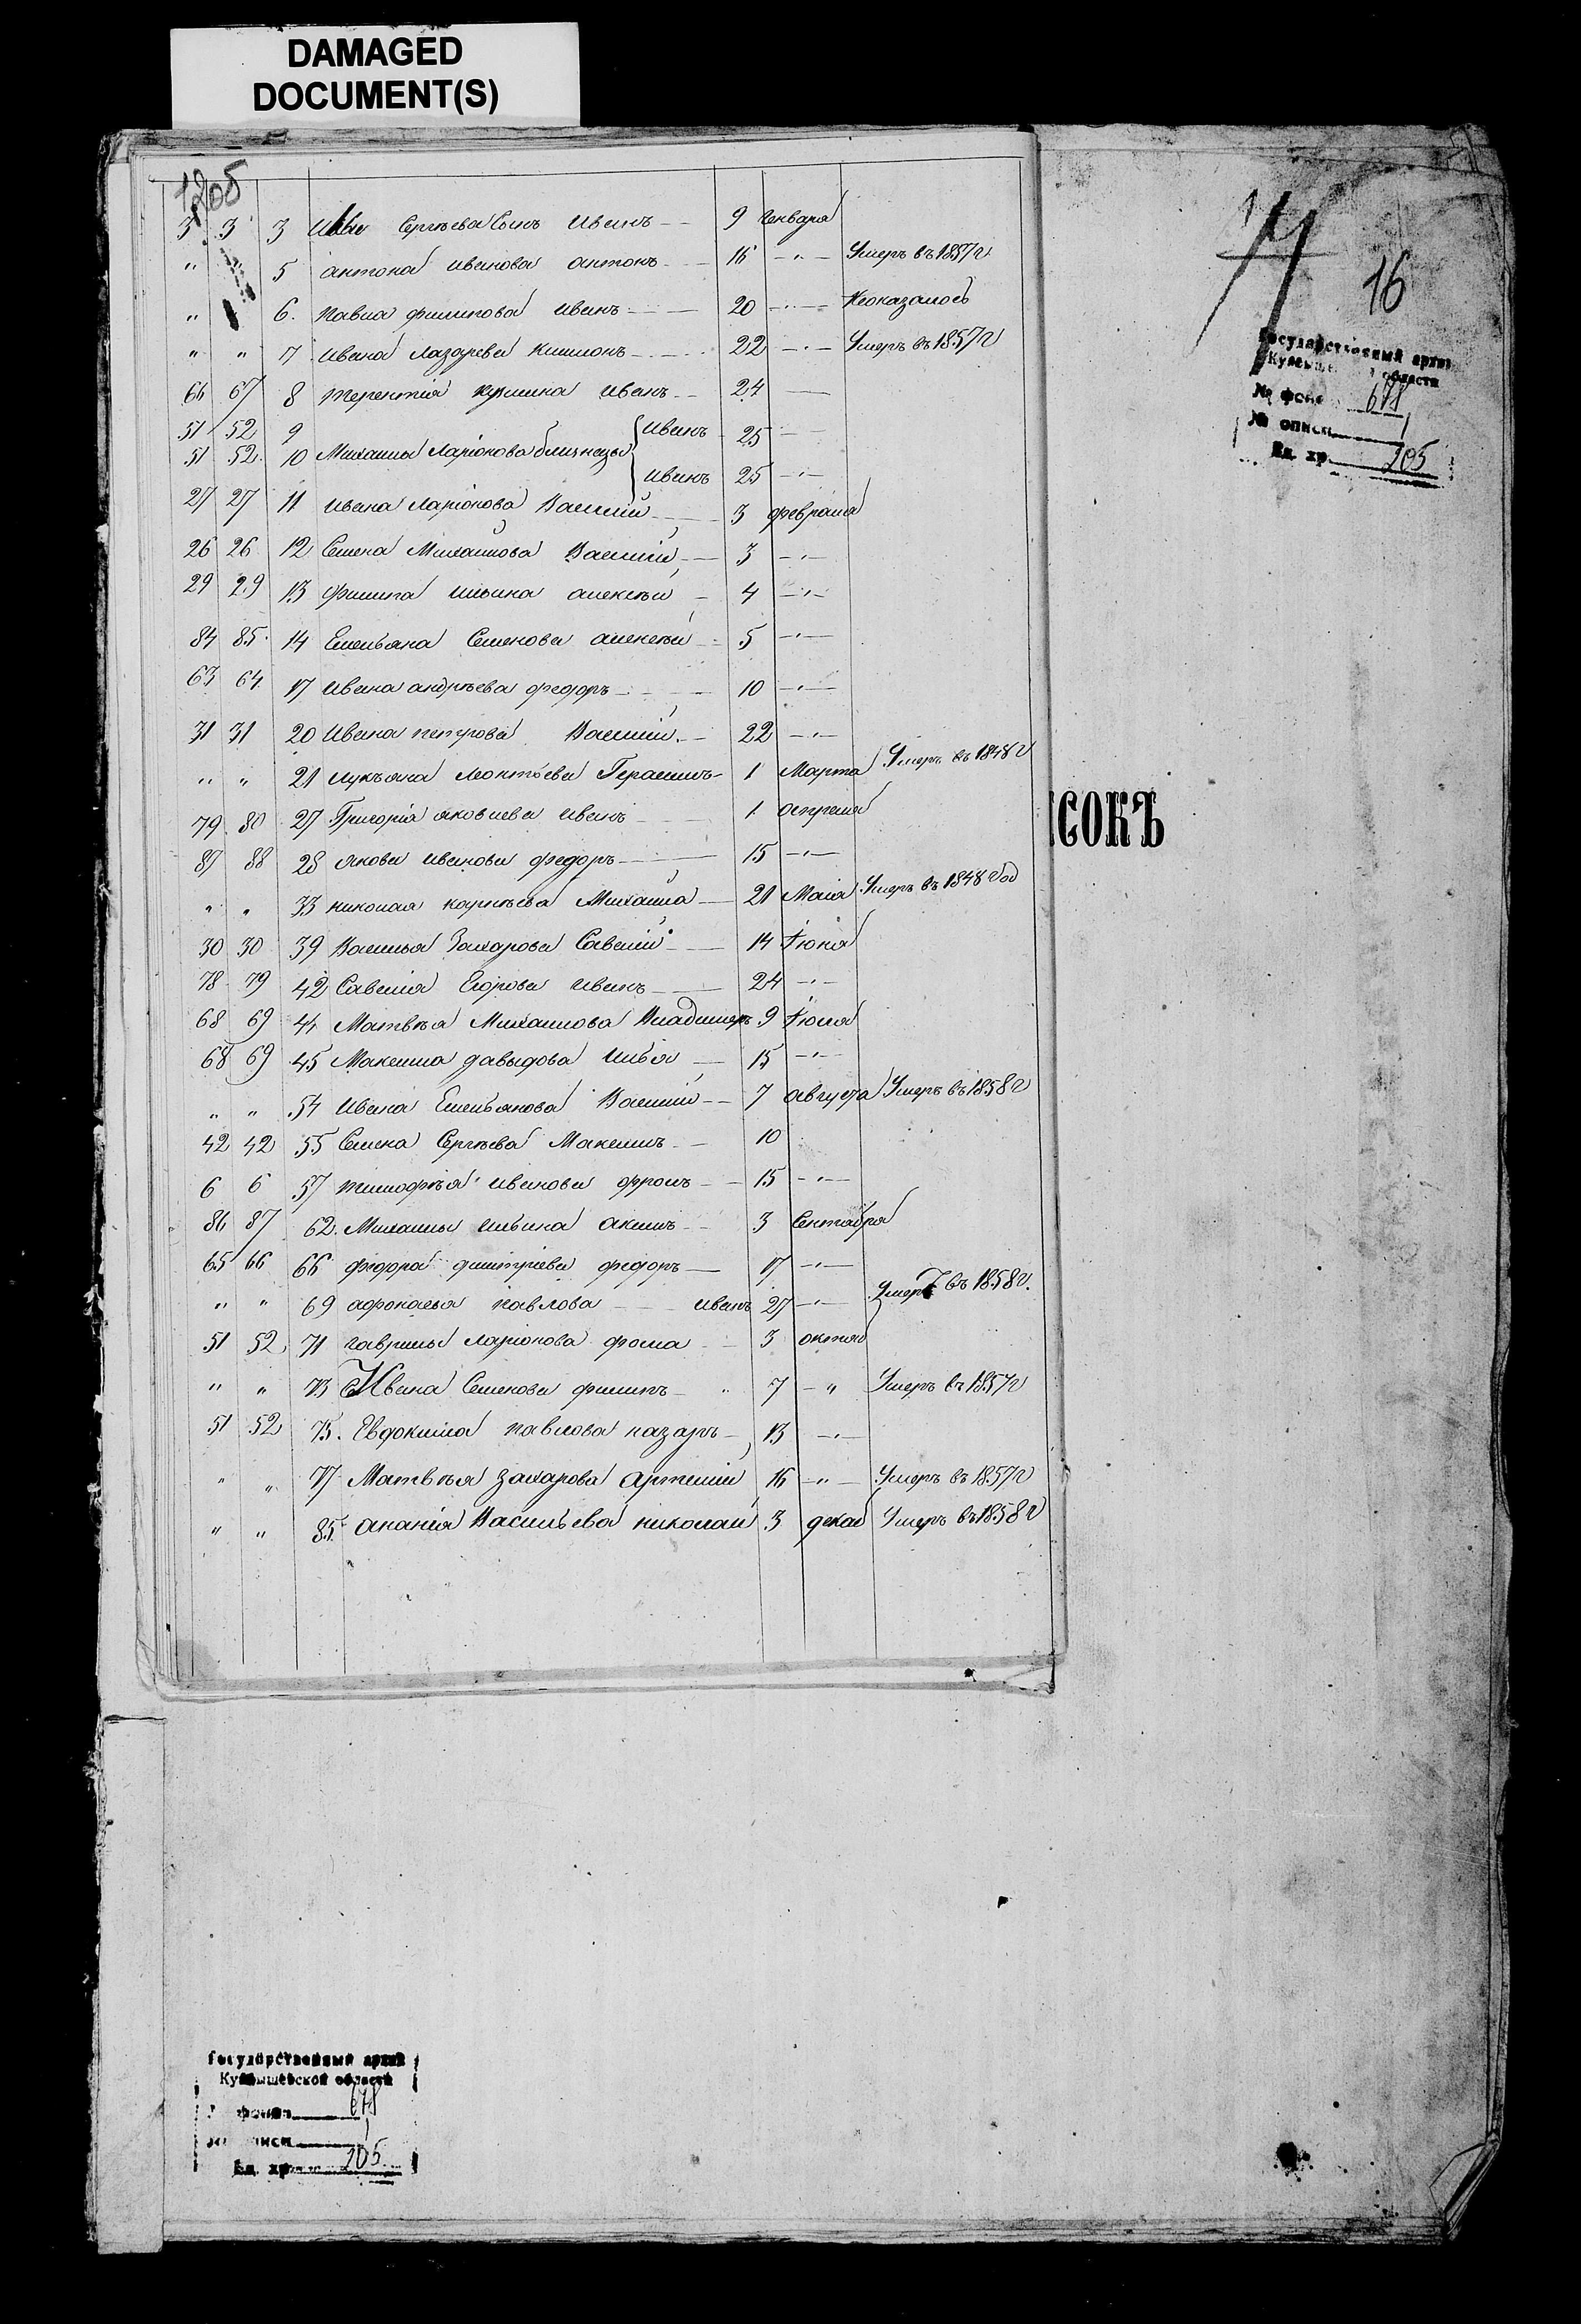 DAMAGED
DOCUMENT(S)
1205
3 3 3 Сергѣева Сынъ Иванъ 9 Генваря
" " 5 Антона Иванова Антонъ 16 —"— Умеръ въ 1857 г
" 6. Павла Филипова Иванъ 20 —"— Неоказалось
" " 7 Ивана Лазарева Филимонъ 22 —"— Умеръ въ 1857 г
66 67 8 Терентія Кузмина Иванъ 24 —
51 52 9 Иванъ 25 —"—
51 52 10 Михаилы Ларіонова близнецы
Иванъ 25 —"—
27 27 11 Ивана Ларіонова Василій 3 февраля
26 26 12 Семена Михаилова Василій 3 —"—
29 29 13 Филипа Ильина Алексѣй 4 —"—
84 85 14 Емельяна Семенова Алексѣй 5 —"—
63 64 17 Ивана Андрѣева Федоръ 10 —"—
31 31 20 Ивана Петрова Василій 22 —"—
" " 21 Лукъяна Леонтьева Герасимъ 1 Марта Умеръ въ 1848 г
79 80 27 Григорія Яковлева Иванъ 1 Апреля
87 88 28 Якова Иванова Федоръ 15 —"—
" " 33 Николая Карнѣева Михайла 21 Маія Умеръ въ 1848 год
30 30 39 Василья Захарова Савелій 14 Іюня
78 79 42 Савелія Егорова Иванъ 24 —"—
68 69 44 Матвѣя Михаилова Владимеръ 9 Іюля
68 69 45 Максима Давыдова Илья 15 —"—
" " 54 Ивана Емельянова Василій 7 Августа Умеръ въ 1858 г
42 42 55 Семена Сергѣева Максимъ 10
6 6 57 Тимофѣя Иванова Фролъ 15 —"—
86 87 62. Михаилы Ильина Акимъ 3 Сентября
65 66 66 Федора Дмитріева Федоръ 17 —"—
" " 69 Афонасья Павлова Иванъ 27 —"— Умеръ въ 1858 г.
51 52 71 Гаврилы Ларіонова Фома 3 октяб
" " 73 Ивана Семенова Филипъ 7 — " Умеръ въ 1857 г
51 52 75. Евдокима Павлова Назаръ 13 —"—
" " 77 Матвѣя Захарова Артемій 16 —"— Умеръ въ 1857 г
" " 85 Ананія Васильева Николай 3 декаб Умеръ въ 1858 г
16
Государственный архив
области
№ фонда 678
№ описи 1
Ед. хр. 205
СОКЪ
Государственный архив
Куйбышевской области
фонда 678
описи 1
Ед. хр. 205